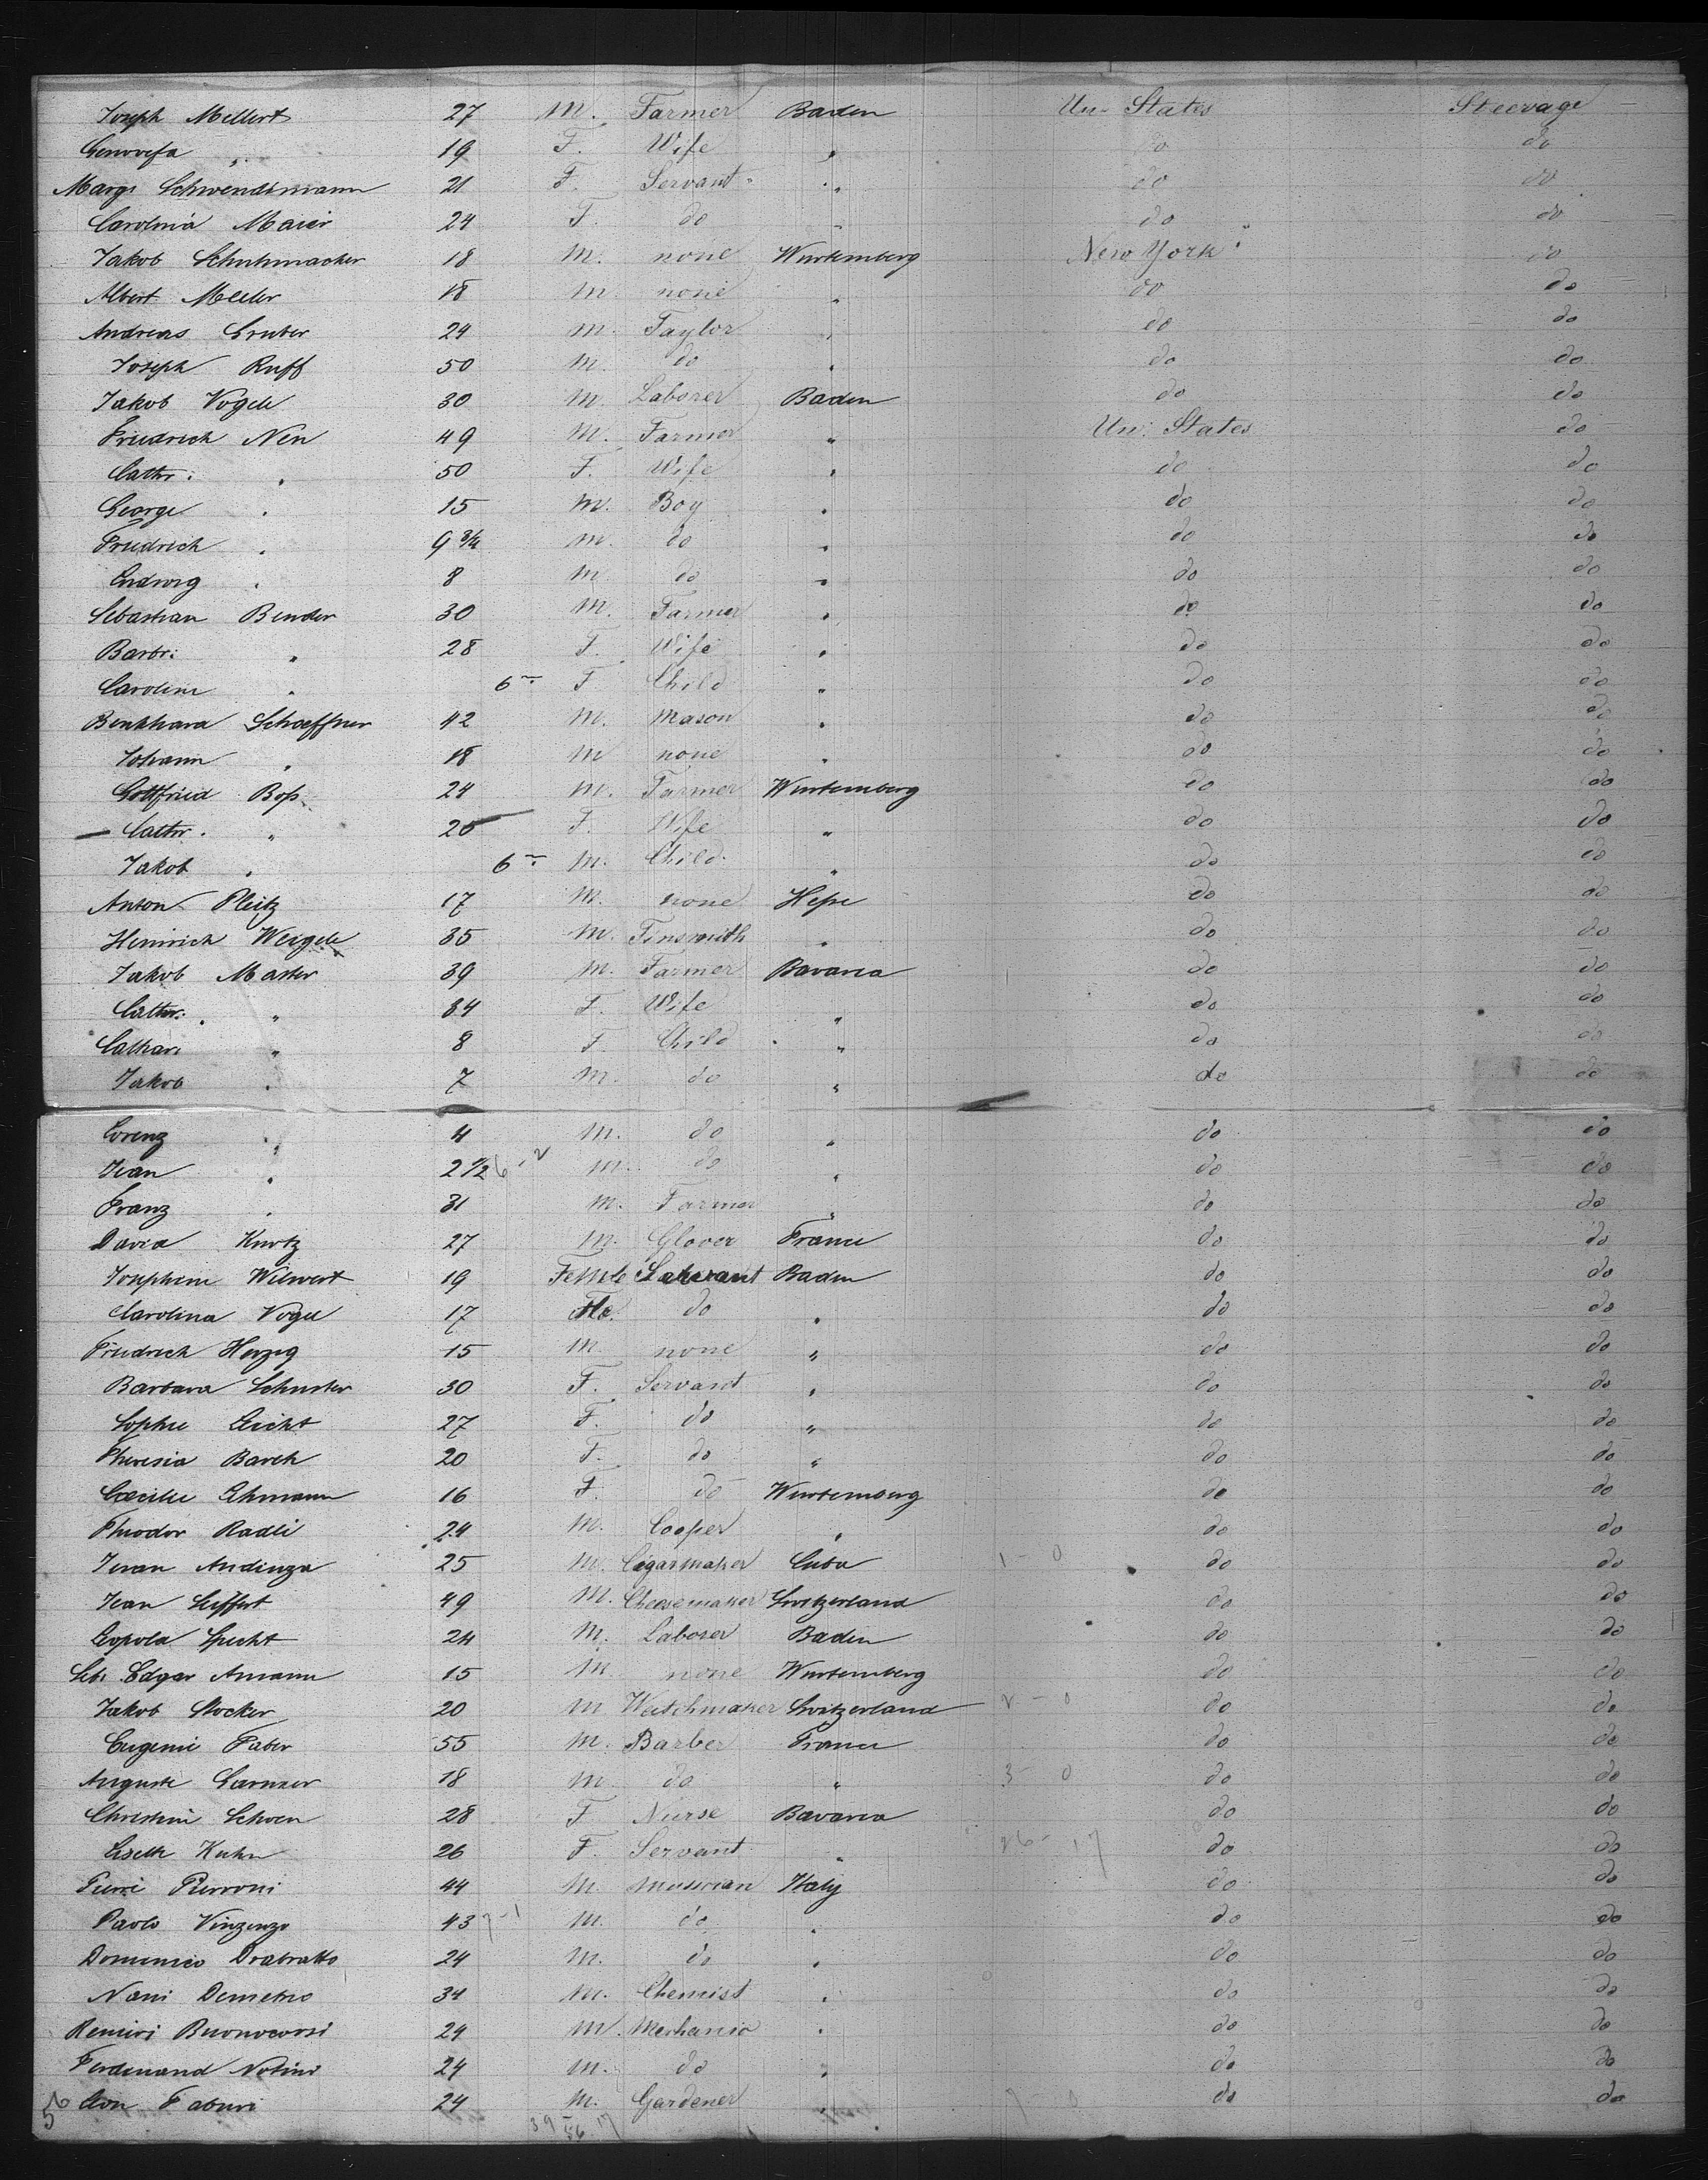 Joseph Mellert 27 M. Farmer Baden Un. States Steerage
Genovefa " 19 F. Wife " do do
Margr Schwendemann 21 F. Servant " do do
Carolina Maier 24 F. do " do do
Jakob Schuhmacher 18 M. none Wurtemberg New York do
Albert 18 M. none " do do
Andreas Gruber 24 M. Taylor " do do
Joseph Ruff 50 M. do " do do
Jakob Vogele 30 M. Laborer Baden do do
Friedrich Nen 49 M. Farmer " Un. States do
Cathr: " 50 F. Wife " do do
George " 15 M. Boy " do do
Friedrich " 9 3/4 M. do " do do
Ludwig " 8 M do " do do
Sebastian Bender 30 M. Farmer " do do
Barbr: " 28 F. Wife " do do
Caroline " 6 m. F Child " do do
Schaeffner 42 M. Mason " do do
Johann " 18 M none " do do
Gottfried Boß 24 M. Farmer Wurtemberg do do
Cathr. " 25 F. Wife " do do
Jakob " 6 m. M. Child " do do
Anton Pleitz 17 M. none Heße do do
Heinrich Weigele 35 M. Tinsmith " do do
Jakob Mater 39 M. Farmer Bavaria do do
Cathr: " 34 F. Wife " do do
Cathar: " 8 F. Child " do do
Jakob " 7 M. do " do do
Lorenz " 4 M. do " do do
Jean " 2 1/2 6-2 M. do " do do
Franz " 31 M. Farmer " do do
David Kurtz 27 M. Glover France do do
Josephine Wilwert 19 Female Servant Baden do do
Carolina Vogel 17 do " do do
Friedrich Herzog 15 M none " do do
Barbara Schuster 30 F. Servant " do do
Sophie Leicht 27 F. do " do do
Theresia Barch 20 F. do " do do
Caecilie Ehmann 16 F. do Wurtemberg do do
Theodor Radli 24 M. Cooper " do do
Juan Andinga 25 M. Cigarmaker Cuba 1-0 do do
Jean Seiffert 49 M. Cheesemaker Switzerland do do
Leopold Specht 24 M. Laborer Baden do do
Edgar Amann 15 M none Wurtemberg do do
Jakob Stocker 20 M Watchmaker Switzerland 2-0 do do
Eugenie Faber 55 M. Barber France do do
Auguste 18 M do " 3-0 do do
Christine Schoen 28 F Nurse Bavaria do do
Liseth Kuhn 26 F. Servant " 26-17 do do
Pierre Pierroni 44 M. Musician Italy do do
Paolo Vinzenzo 43 7-1 M. do " do do
Domenico Drabratto 24 M. do " do do
Nani Demetrio 34 M. Chemist " do do
Remiri Buonocorsi 24 M. Mechanic " do do
Ferdinand Notini 24 M. do " do do
Leon Faburi 24 M. Gardener " 7 0 do do
56
39 56 17